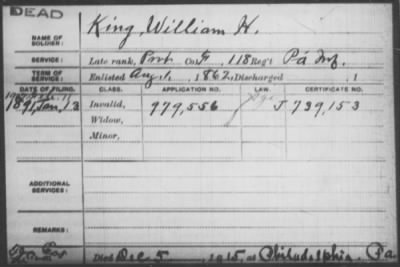 DEAD
NAME OF SOLDIER: King, William H.
SERVICE: Late rank, Prvt Co. G, 118 Reg't Pa Inf.
TERM OF SERVICE: Enlisted Aug. 1, 1862, Discharged , 1
DATE OF FILING. CLASS. APPLICATION NO. LAW. CERTIFICATE NO.
1891, Jan, 13 Invalid, 979,556 J 739,153
Widow,
Minor,
ADDITIONAL SERVICES:
REMARKS:
Died Dec 5, 1915, at Philadelphia, Pa